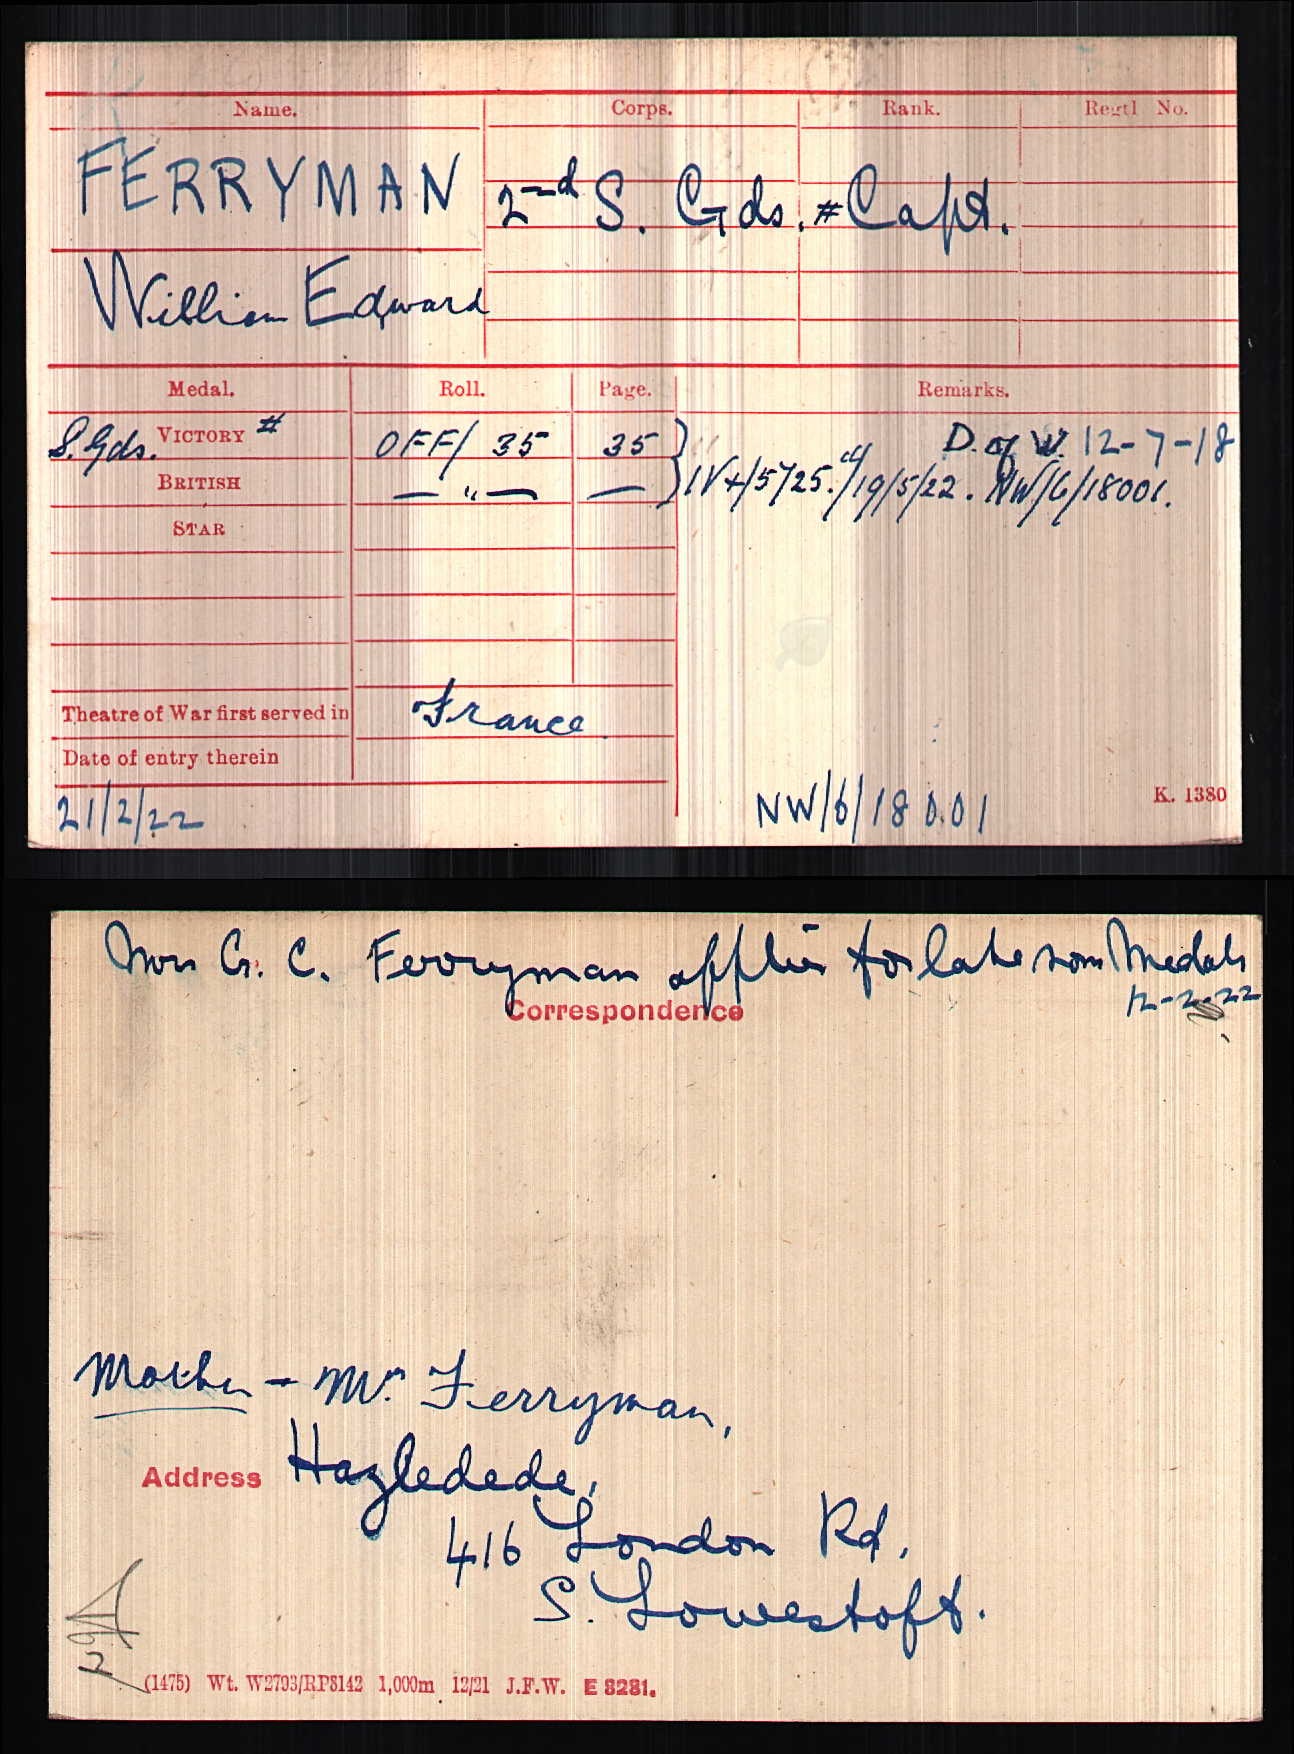 Name. Corps. Rank. Regtl No.
FERRYMAN 2nd S. Gds. # Capt.
William Edward
Medal. Roll. Page. Remarks.
D. of W. 12-7-18
S. Gds. VICTORY # OFF/ 35 35
BRITISH — " — — IV+/5725. /19/5/22. NW/6/18001.
STAR
Theatre of War first served in France
Date of entry therein
21/2/22 NW/6/18001 K. 1380
Mrs G. C. Ferryman applies for late sons Medals
12-2-22
Correspondence
Mother - Mrs Ferryman,
Address Hazledede,
416 London Rd,
S. Lowestoft.
(1475) Wt. W2793/RP8142 1,000m 12/21 J.F.W. E 8281.